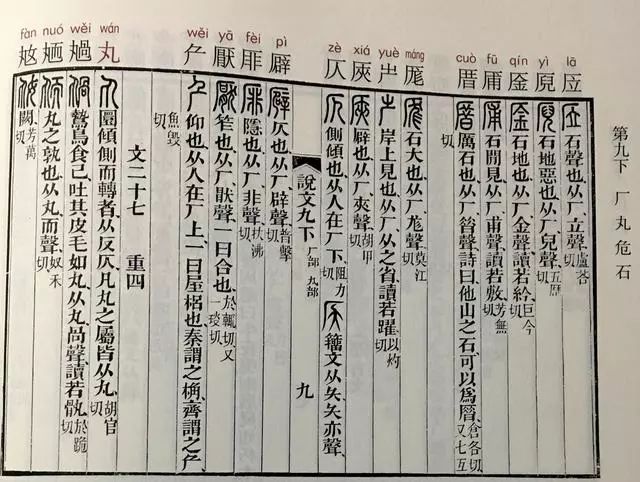 lā yì qín fū cuò máng yuè xiá zè pì fèi yā wěi wán wěi nuó fàn
厝 厖 仄 厞 厭 厃 丸
第九下 厂丸危石
石聲也从厂立聲盧荅切
石地惡也从厂兒聲五歷切
石地也从厂金聲讀若紟巨今切
石閒見也从厂甫聲讀若敷芳無切
厝厲石也从厂㫺聲詩曰他山之石可以爲厝倉各切又七互切
厖石大也从厂尨聲莫江切
岸上見也从厂从之省讀若躍以灼切
辟也从厂夾聲胡甲切
仄側傾也从人在厂下阻力切籒文从矢矢亦聲
說文九下 厂部 丸部 九
仄也从厂辟聲普擊切
厞隱也从厂非聲扶沸切
厭笮也从厂猒聲一曰合也於輒切又一琰切
厃仰也从人在厂上一曰屋梠也秦謂之桷齊謂之厃魚毀切
文二十七 重四
丸圜傾側而轉者从反仄凡丸之屬皆从丸胡官切
鷙鳥食已吐其皮毛如丸从丸咼聲讀若骫於跪切
丸之孰也从丸而聲奴禾切
闕芳萬切